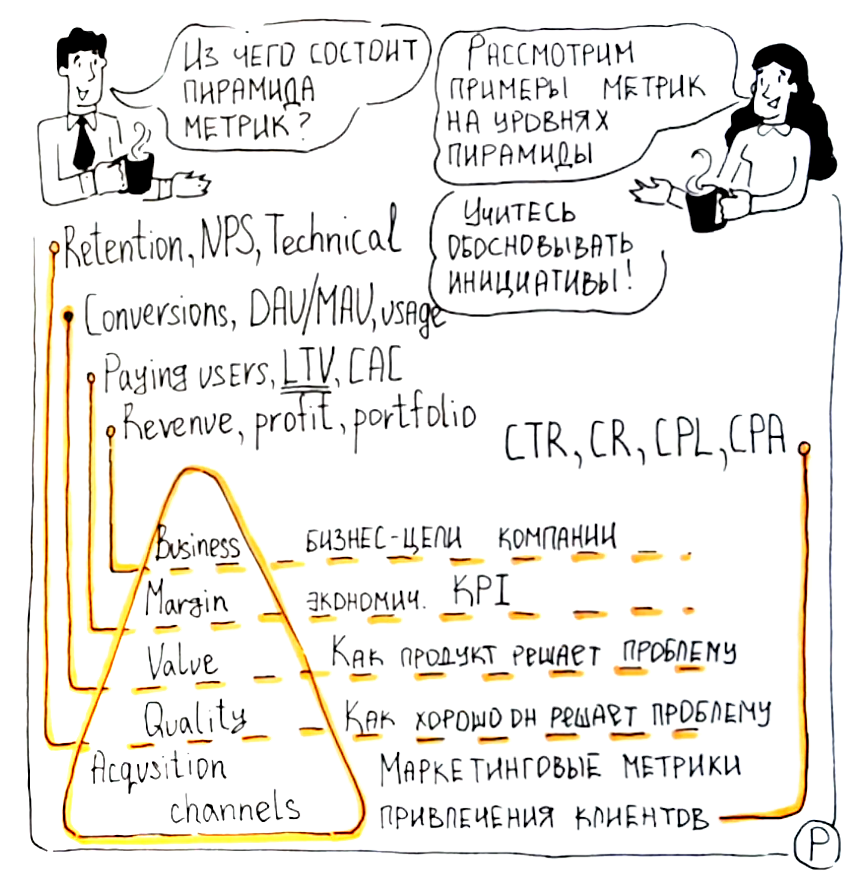 Из чего состоит
пирамида
метрик?
Рассмотрим
примеры метрик
на уровнях
пирамиды
Учитесь
обосновывать
инициативы!
Retention, NPS, Technical
Conversions, DAU/MAU, usage
Paying users, LTV, CAC
Revenue, profit, portfolio
CTR, CR, CPL, CPA
Business бизнес-цели компании
Margin экономич. KPI
Value Как продукт решает проблему
Quality Как хорошо он решает проблему
Acqusition Маркетинговые метрики
channels привлечения клиентов
P